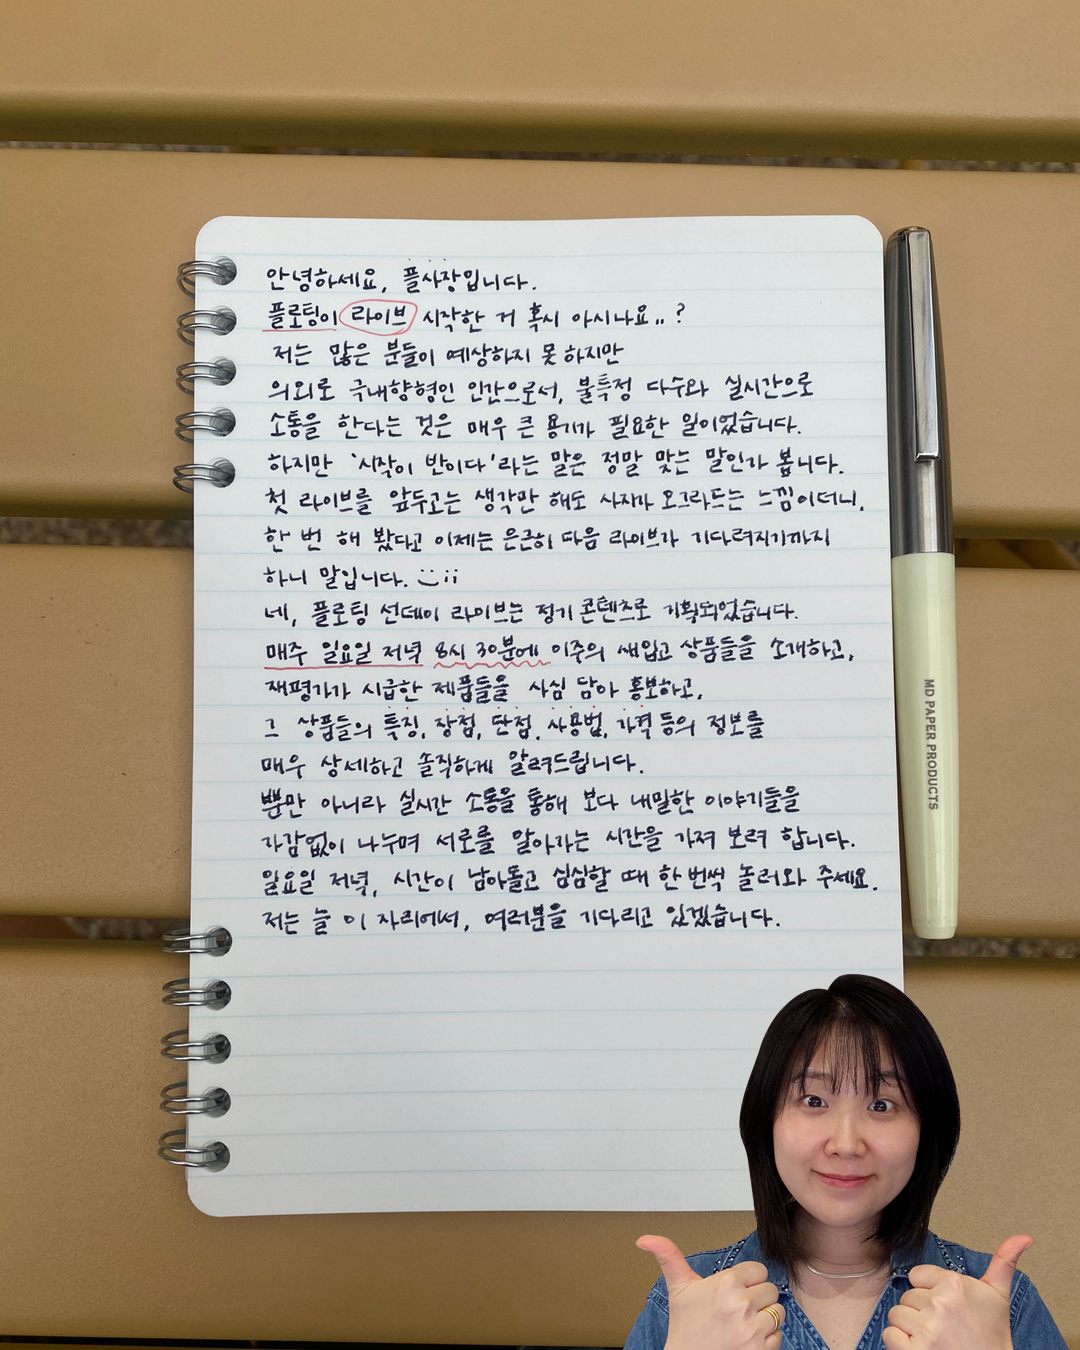 안녕하세요, 플사장입니다.
플로팅이 라이브 시작한 거 혹시 아시나요..?
저는 많은 분들이 예상하지 못하지만
의외로 극내향형인 인간으로서, 불특정 다수와 실시간으로
소통을 한다는 것은 매우 큰 용기가 필요한 일이었습니다.
하지만 '시작이 반이다'라는 말은 정말 맞는 말인가 봅니다.
첫 라이브를 앞두고는 생각만 해도 사지가 오그라드는 느낌이더니,
한 번 해 봤다고 이제는 은근히 다음 라이브가 기다려지기까지
하니 말입니다.
네, 플로팅 선데이 라이브는 정기 콘텐츠로 기획되었습니다.
매주 일요일 저녁 8시 30분에 이주의 새입고 상품들을 소개하고,
재평가가 시급한 제품들을 사심 담아 홍보하고,
그 상품들의 특징, 장점, 단점, 사용법, 가격 등의 정보를
매우 상세하고 솔직하게 알려드립니다.
뿐만 아니라 실시간 소통을 통해 보다 내밀한 이야기들을
가감없이 나누며 서로를 알아가는 시간을 가져 보려 합니다.
일요일 저녁, 시간이 남아돌고 심심할 때 한 번씩 놀러와 주세요.
저는 늘 이 자리에서, 여러분을 기다리고 있겠습니다.
MD PAPER PRODUCTS